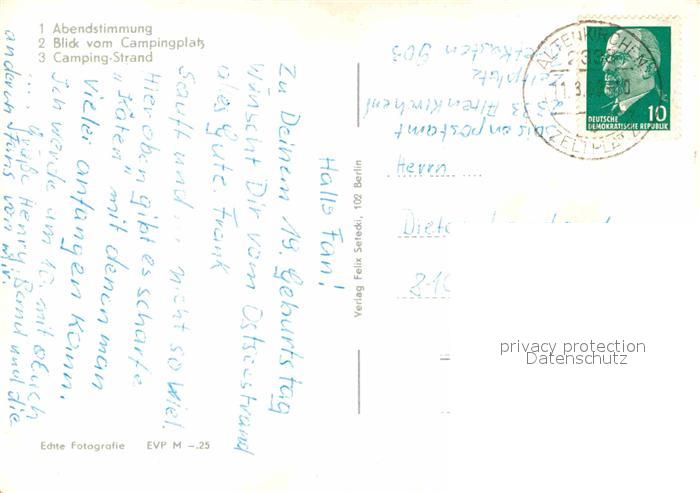 1 Abendstimmung
2 Blick vom Campingplatz
3 Camping-Strand
Hallo Fan!
Zu Deinem 19. Geburtstag
wünscht Dir vom Ostseestrand
alles Gute. Frank
Sauft und ... nicht so viel.
Hier oben gibt es scharfe
"Käter" mit denen man
vielei anfangen kann.
Ich werde um 10. mit
... Grüße Henry, Bernd und die
anderen Fans von
Echte Fotografie EVP M –.25
Verlag Felix Setecki, 102 Berlin
postamt
903
Herrn ...
ALTENKIRCHEN
ZELTPLATZ
10
DEUTSCHE
DEMOKRATISCHE REPUBLIK
privacy protection
Datenschutz